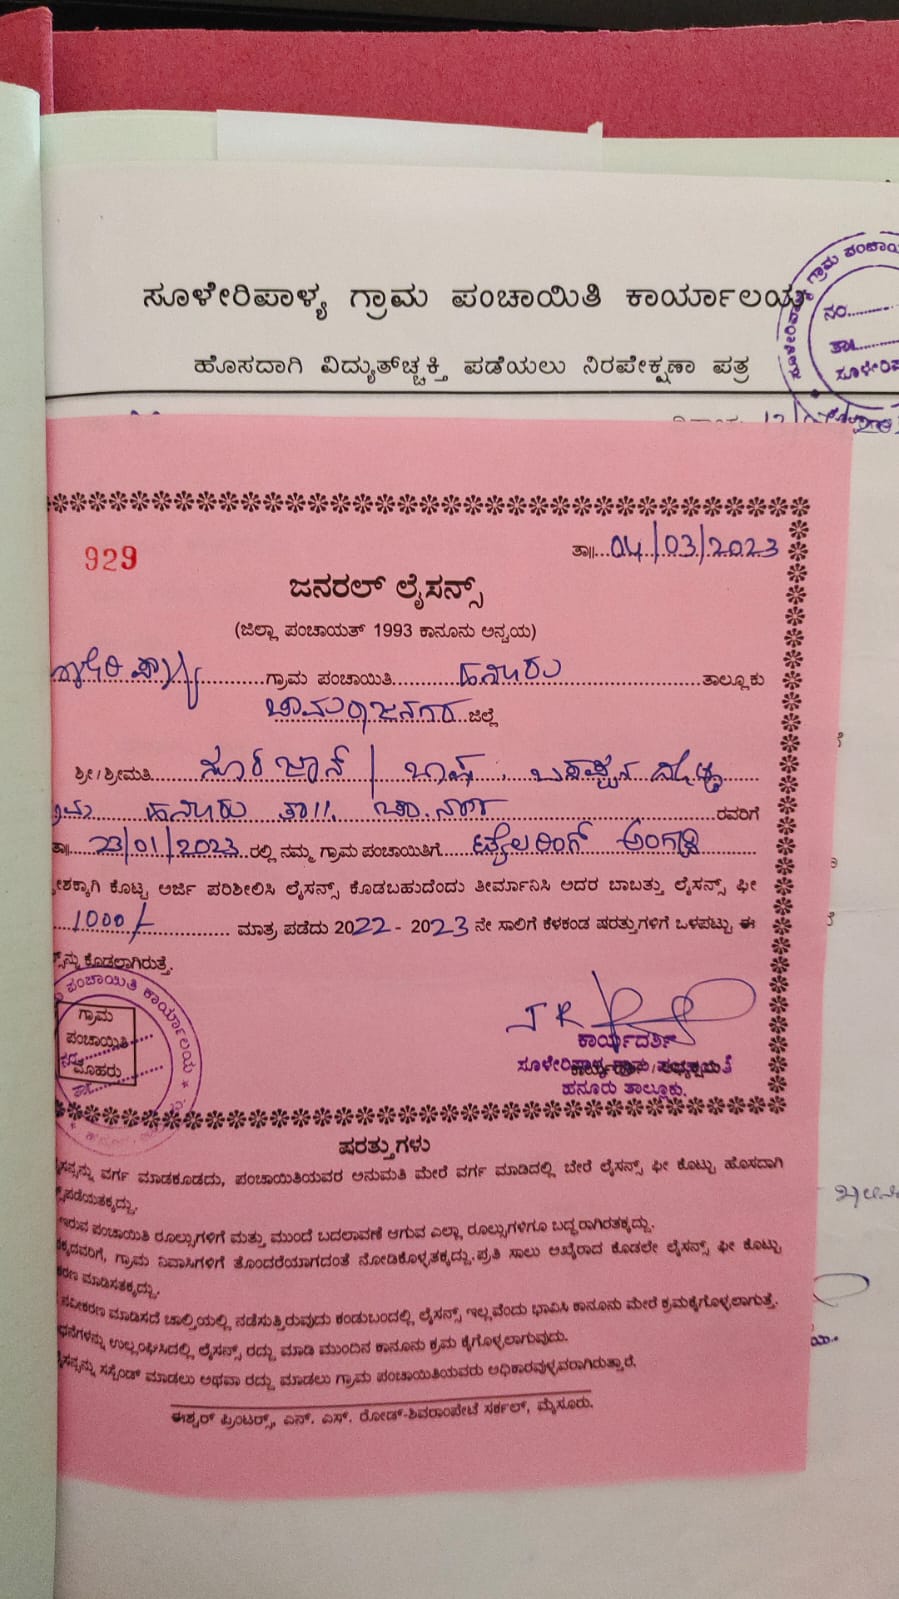 ಸೂಳೇರಿಪಾಳ್ಯ ಗ್ರಾಮ ಪಂಚಾಯಿತಿ ಕಾರ್ಯಾಲಯ
ಗ್ರಾಮ ಪಂಚಾಯಿ
ನಂ.
ತಾ॥
ಹೊಸದಾಗಿ ವಿದ್ಯುತ್‌ಚ್ಚಕ್ತಿ ಪಡೆಯಲು ನಿರಪೇಕ್ಷಣಾ ಪತ್ರ
929
ತಾ॥...04/03/2023
ಜನರಲ್ ಲೈಸನ್ಸ್
(ಜಿಲ್ಲಾ ಪಂಚಾಯತ್ 1993 ಕಾನೂನು ಅನ್ವಯ)
ಗ್ರಾಮ ಪಂಚಾಯಿತಿ ಹನೂರು ತಾಲ್ಲೂಕು
ಚಾಮರಾಜನಗರ ಜಿಲ್ಲೆ
ಶ್ರೀ/ಶ್ರೀಮತಿ ನೂರ್ ಜಾನ್ / ಬಾಷ
ಹನೂರು ತಾ॥ ರವರಿಗೆ
ತಾ॥ 23/01/2023 ರಲ್ಲಿ ನಮ್ಮ ಗ್ರಾಮ ಪಂಚಾಯಿತಿಗೆ ಟೈಲರಿಂಗ್ ಅಂಗಡಿ
ಕೊಟ್ಟ ಅರ್ಜಿ ಪರಿಶೀಲಿಸಿ ಲೈಸನ್ಸ್ ಕೊಡಬಹುದೆಂದು ತೀರ್ಮಾನಿಸಿ ಅದರ ಬಾಬತ್ತು ಲೈಸನ್ಸ್ ಫೀ
1000/- ಮಾತ್ರ ಪಡೆದು 2022 - 2023 ನೇ ಸಾಲಿಗೆ ಕೆಳಕಂಡ ಷರತ್ತುಗಳಿಗೆ ಒಳಪಟ್ಟು ಈ
ಕೊಡಲಾಗಿರುತ್ತೆ.
ಪಂಚಾಯಿತಿ ಕಾರ್ಯಾಲಯ
ಗ್ರಾಮ
ಪಂಚಾಯಿತಿ
ಮೊಹರು
ಕಾರ್ಯದರ್ಶಿ
ಸೂಳೇರಿಪಾಳ್ಯ ಗ್ರಾಮ ಪಂಚಾಯಿತಿ
ಹನೂರು ತಾಲ್ಲೂಕು.
ಷರತ್ತುಗಳು
ವರ್ಗ ಮಾಡಕೂಡದು, ಪಂಚಾಯಿತಿಯವರ ಅನುಮತಿ ಮೇರೆ ವರ್ಗ ಮಾಡಿದಲ್ಲಿ ಬೇರೆ ಲೈಸನ್ಸ್ ಫೀ ಕೊಟ್ಟು ಹೊಸದಾಗಿ
ಇರುವ ಪಂಚಾಯಿತಿ ರೂಲ್ಸುಗಳಿಗೆ ಮತ್ತು ಮುಂದೆ ಬದಲಾವಣೆ ಆಗುವ ಎಲ್ಲಾ ರೂಲ್ಸುಗಳಿಗೂ ಬದ್ಧರಾಗಿರತಕ್ಕದ್ದು.
ಗ್ರಾಮ ನಿವಾಸಿಗಳಿಗೆ ತೊಂದರೆಯಾಗದಂತೆ ನೋಡಿಕೊಳ್ಳತಕ್ಕದ್ದು. ಪ್ರತಿ ಸಾಲು ಅಖೈರಾದ ಕೂಡಲೇ ಲೈಸನ್ಸ್ ಫೀ ಕೊಟ್ಟು
ಮಾಡಿಸತಕ್ಕದ್ದು.
ನವೀಕರಣ ಮಾಡಿಸದೆ ಚಾಲ್ತಿಯಲ್ಲಿ ನಡೆಸುತ್ತಿರುವುದು ಕಂಡುಬಂದಲ್ಲಿ ಲೈಸನ್ಸ್ ಇಲ್ಲವೆಂದು ಭಾವಿಸಿ ಕಾನೂನು ಮೇರೆ ಕ್ರಮಕೈಗೊಳ್ಳಲಾಗುತ್ತೆ.
ಉಲ್ಲಂಘಿಸಿದಲ್ಲಿ ಲೈಸನ್ಸ್ ರದ್ದು ಮಾಡಿ ಮುಂದಿನ ಕಾನೂನು ಕ್ರಮ ಕೈಗೊಳ್ಳಲಾಗುವುದು.
ಸಸ್ಪೆಂಡ್ ಮಾಡಲು ಅಥವಾ ರದ್ದು ಮಾಡಲು ಗ್ರಾಮ ಪಂಚಾಯಿತಿಯವರು ಅಧಿಕಾರವುಳ್ಳವರಾಗಿರುತ್ತಾರೆ.
ಈಶ್ವರ್ ಪ್ರಿಂಟರ್ಸ್, ಎನ್. ಎಸ್. ರೋಡ್-ಶಿವರಾಂಪೇಟೆ ಸರ್ಕಲ್, ಮೈಸೂರು.